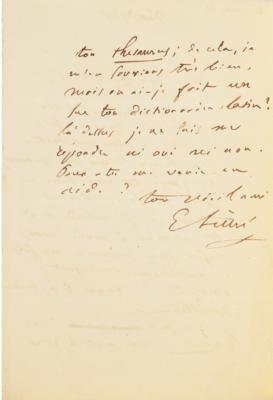 ton thesaurus ; de cela, je
m'en souviens très bien,
mais en ai-je fait un
sur ton dictionnaire latin ?
là dessus je ne puis me
répondre ni oui ni non.
Peux-tu me venir en
aide ?
ton vieil ami
E Littré